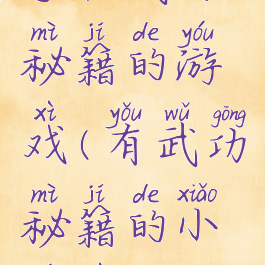 mì jí de yóu
秘籍的游
xì yǒu wǔ gōng
戏(有武功
mì jí de xiǎo
秘籍的小